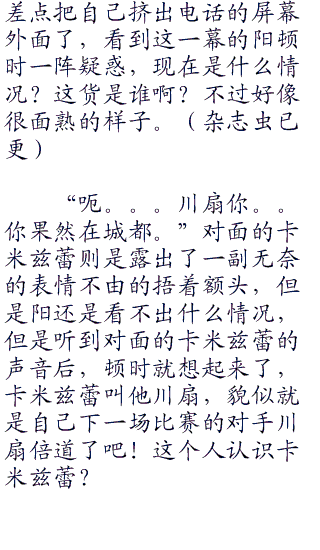 差点把自己挤出电话的屏幕
外面了，看到这一幕的阳顿
时一阵疑惑，现在是什么情
况？这货是谁啊？不过好像
很面熟的样子。（杂志虫已
更）
“呃。。。川扇你。。
你果然在城都。”对面的卡
米兹蕾则是露出了一副无奈
的表情不由的捂着额头，但
是阳还是看不出什么情况，
但是听到对面的卡米兹蕾的
声音后，顿时就想起来了，
卡米兹蕾叫他川扇，貌似就
是自己下一场比赛的对手川
扇倍道了吧！这个人认识卡
米兹蕾？